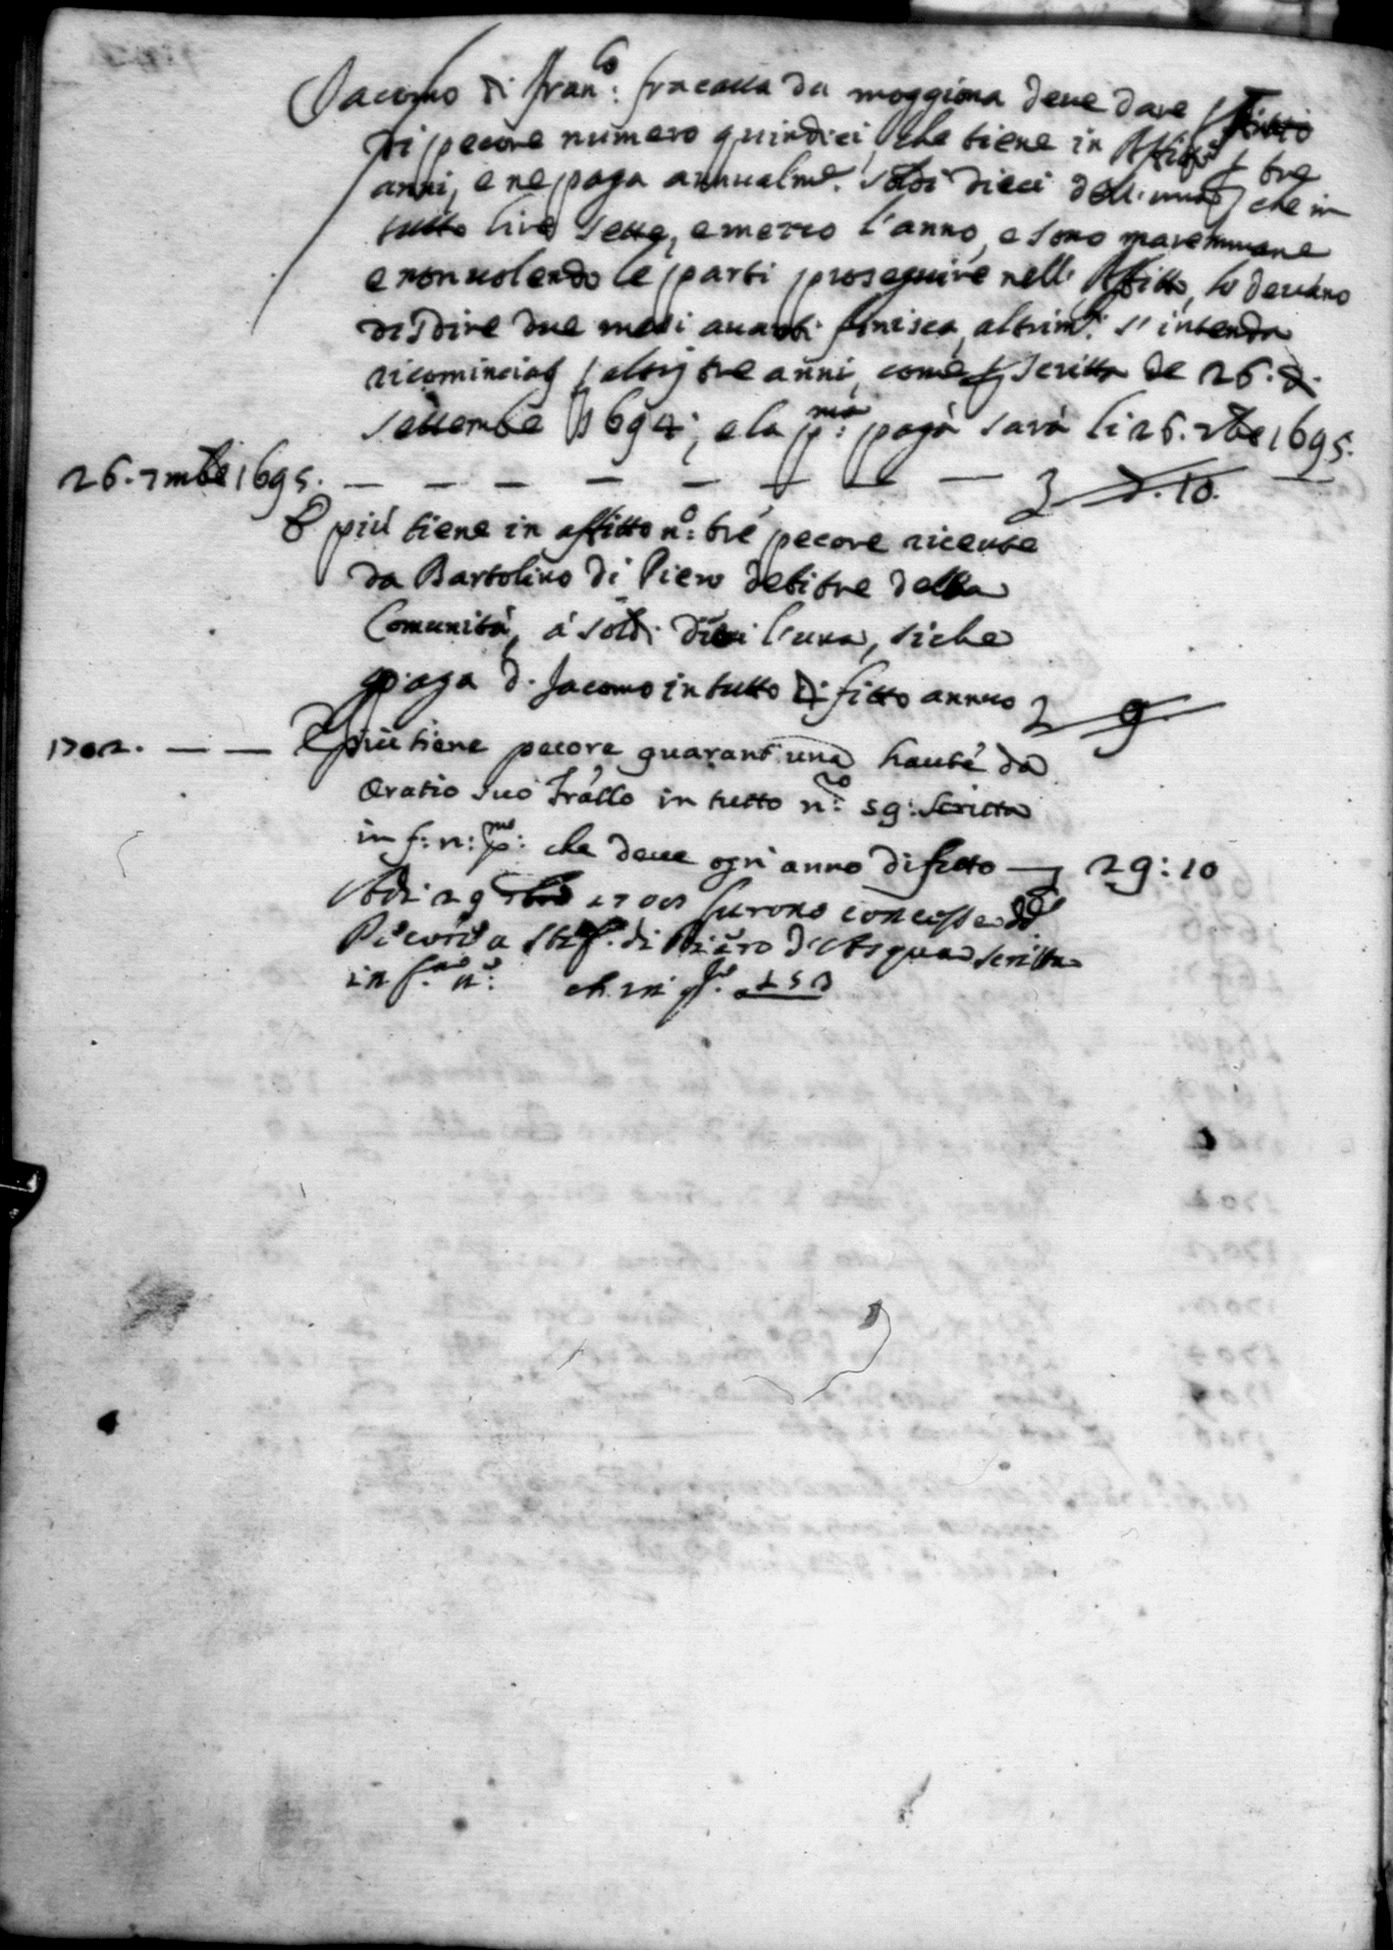 Jacomo di Fran:co fracassa da moggiona deve dare
di pecore numero quindici, che tiene in Affitto p tre
anni, e ne paga annualmte: soldi dieci dell'una, che in
tutto lire sette, e mezzo l'anno, e sono maremmane
e non volendo le parti proseguire nell'Affitto, lo devano
disdire due mesi avanti finisca, altrimti: s'intenda
ricominciato p altri tre anni, come p scritta de 26. d.
settembe 1694; e la p:ma paga sarà li 26. 7bre 1695.
26. 7mbe 1695. — — — — — — — — 7. 10.
E più tiene in affitto n:o tré pecore riceute
da Bartolino di Piero debitre della
Comunità, á soldi dieci l'una, siche
paga d. Jacomo in tutto di fitto annuo 9.
1702. — — E più tiene pecore quarant'una haute da
Oratio suo Frallo in tutto n:ro 59: Scritta
in f: n: p:mo: che deve ogni anno di fitto — 29: 10
Adi 29 1700 furono concesse dd
Pecore a Stef. di Piero d'Asqua scritta
in f. n: